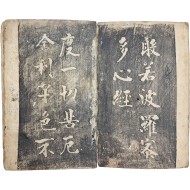 般若波羅蜜
多心經
度一切苦厄
舍利子色不